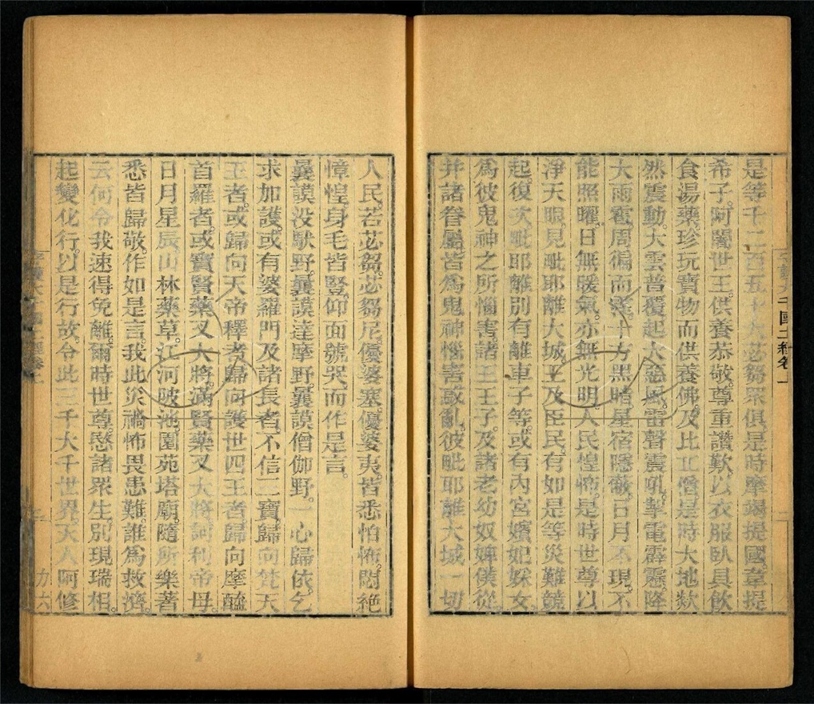 是等千二百五十大苾芻眾俱是時摩竭提國韋提
希子阿闍世王供養恭敬尊重讚歎以衣服臥具飲
食湯藥珍玩寶物而供養佛及比丘僧是時大地欻
然震動大雲普覆起大惡風雷聲震吼掣電霹靂降
大雨雹周徧而霔十方黑暗星宿隱蔽日月不現不
能照曜日無暖氣亦無光明人民惶怖是時世尊以
淨天眼見毗耶離大城王及臣民有如是等災難競
起復次毗耶離別有離車子等或有內宮嬪妃婇女
為彼鬼神之所惱害諸王王子及諸老幼奴婢僕從
并諸眷屬皆為鬼神惱害或亂彼毗耶離大城一切
人民若苾芻苾芻尼優婆塞優婆夷皆悉怕怖悶絕
惶身毛皆豎仰面號哭而作是言
曩謨沒馱野曩謨達摩野曩謨僧伽野一心歸依乞
求加護或有婆羅門及諸長者不信三寶歸向梵天
王者或歸向天帝釋者歸向護世四王者歸向摩醯
首羅者或寶賢藥叉大將滿賢藥叉大將訶利帝母
日月星辰山林藥草江河陂池園苑塔廟隨所樂著
悉皆歸敬作如是言我此災禍怖畏患難誰為救濟
云何令我速得免離爾時世尊愍諸眾生別現瑞相
起變化行以是行故令此三千大千世界天人阿修